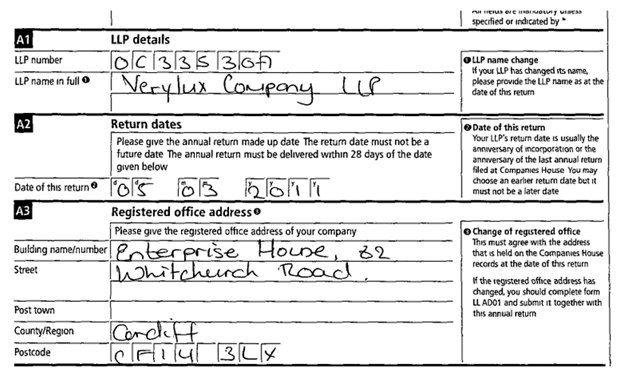 All fields are mandatory unless
specified or indicated by *
A1 LLP details
LLP number
LLP name in full ❶ Verylux Company LLP
❶ LLP name change
If your LLP has changed its name,
please provide the LLP name as at the
date of this return
A2 Return dates
Please give the annual return made up date The return date must not be a
future date The annual return must be delivered within 28 days of the date
given below
Date of this return ❷ 05 03 2011
❷ Date of this return
Your LLP's return date is usually the
anniversary of incorporation or the
anniversary of the last annual return
filed at Companies House You may
choose an earlier return date but it
must not be a later date
A3 Registered office address ❸
Please give the registered office address of your company
Building name/number Enterprise House, 82
Street Whitchurch Road.
Post town
County/Region Cardiff
Postcode CF14 3LX
❸ Change of registered office
This must agree with the address
that is held on the Companies House
records at the date of this return
If the registered office address has
changed, you should complete form
LL AD01 and submit it together with
this annual return